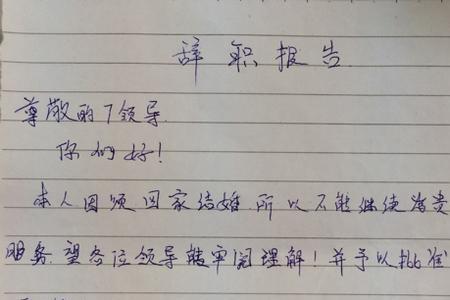 辞职报告
尊敬的7领导
你们好!
本人因须回家结婚.所以不能继续为贵
服务.望各位领导能审阅理解!并予以批准